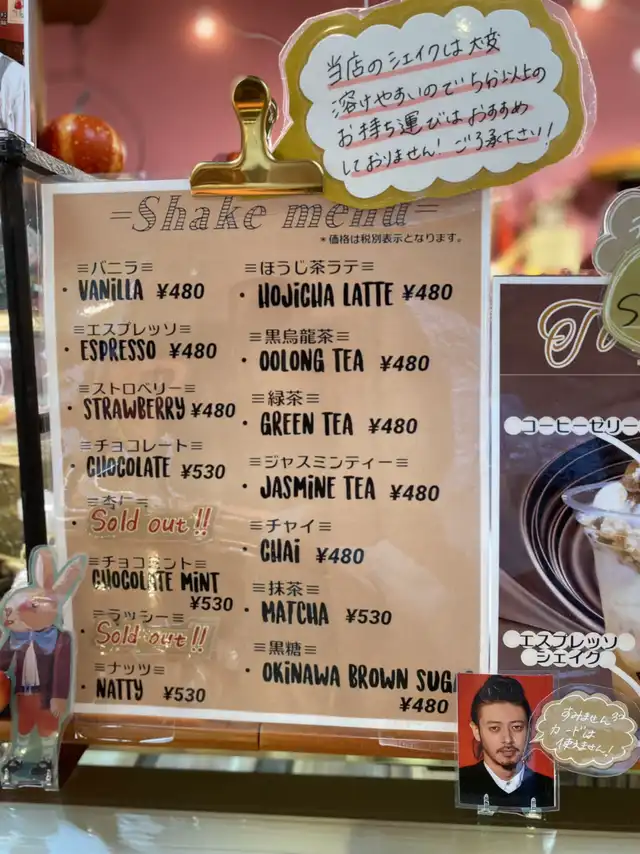 当店のシェイクは大変
溶けやすいので5分以上の
お持ち運びはおすすめ
しておりません！ご了承下さい！
=Shake menu=
*価格は税別表示となります。
≡バニラ≡
・VANiLLA ¥480
≡エスプレッソ≡
・ESPRESSO ¥480
≡ストロベリー≡
・STRAWBERRY ¥480
≡チョコレート≡
・CHOCOLATE ¥530
≡杏仁≡
・Sold out!!
≡チョコミント≡
CHOCOLATE MiNT
¥530
≡ラッシー≡
・Sold out!!
≡ナッツ≡
・NATTY ¥530
≡ほうじ茶ラテ≡
・HOJiCHA LATTE ¥480
≡黒烏龍茶≡
・OOLONG TEA ¥480
≡緑茶≡
・GREEN TEA ¥480
≡ジャスミンティー≡
・JASMiNE TEA ¥480
≡チャイ≡
・CHAi ¥480
≡抹茶≡
・MATCHA ¥530
≡黒糖≡
・OKiNAWA BROWN SUG
¥480
コーヒーゼリー
エスプレッソ
シェイク
すみません
カードは
使えません！